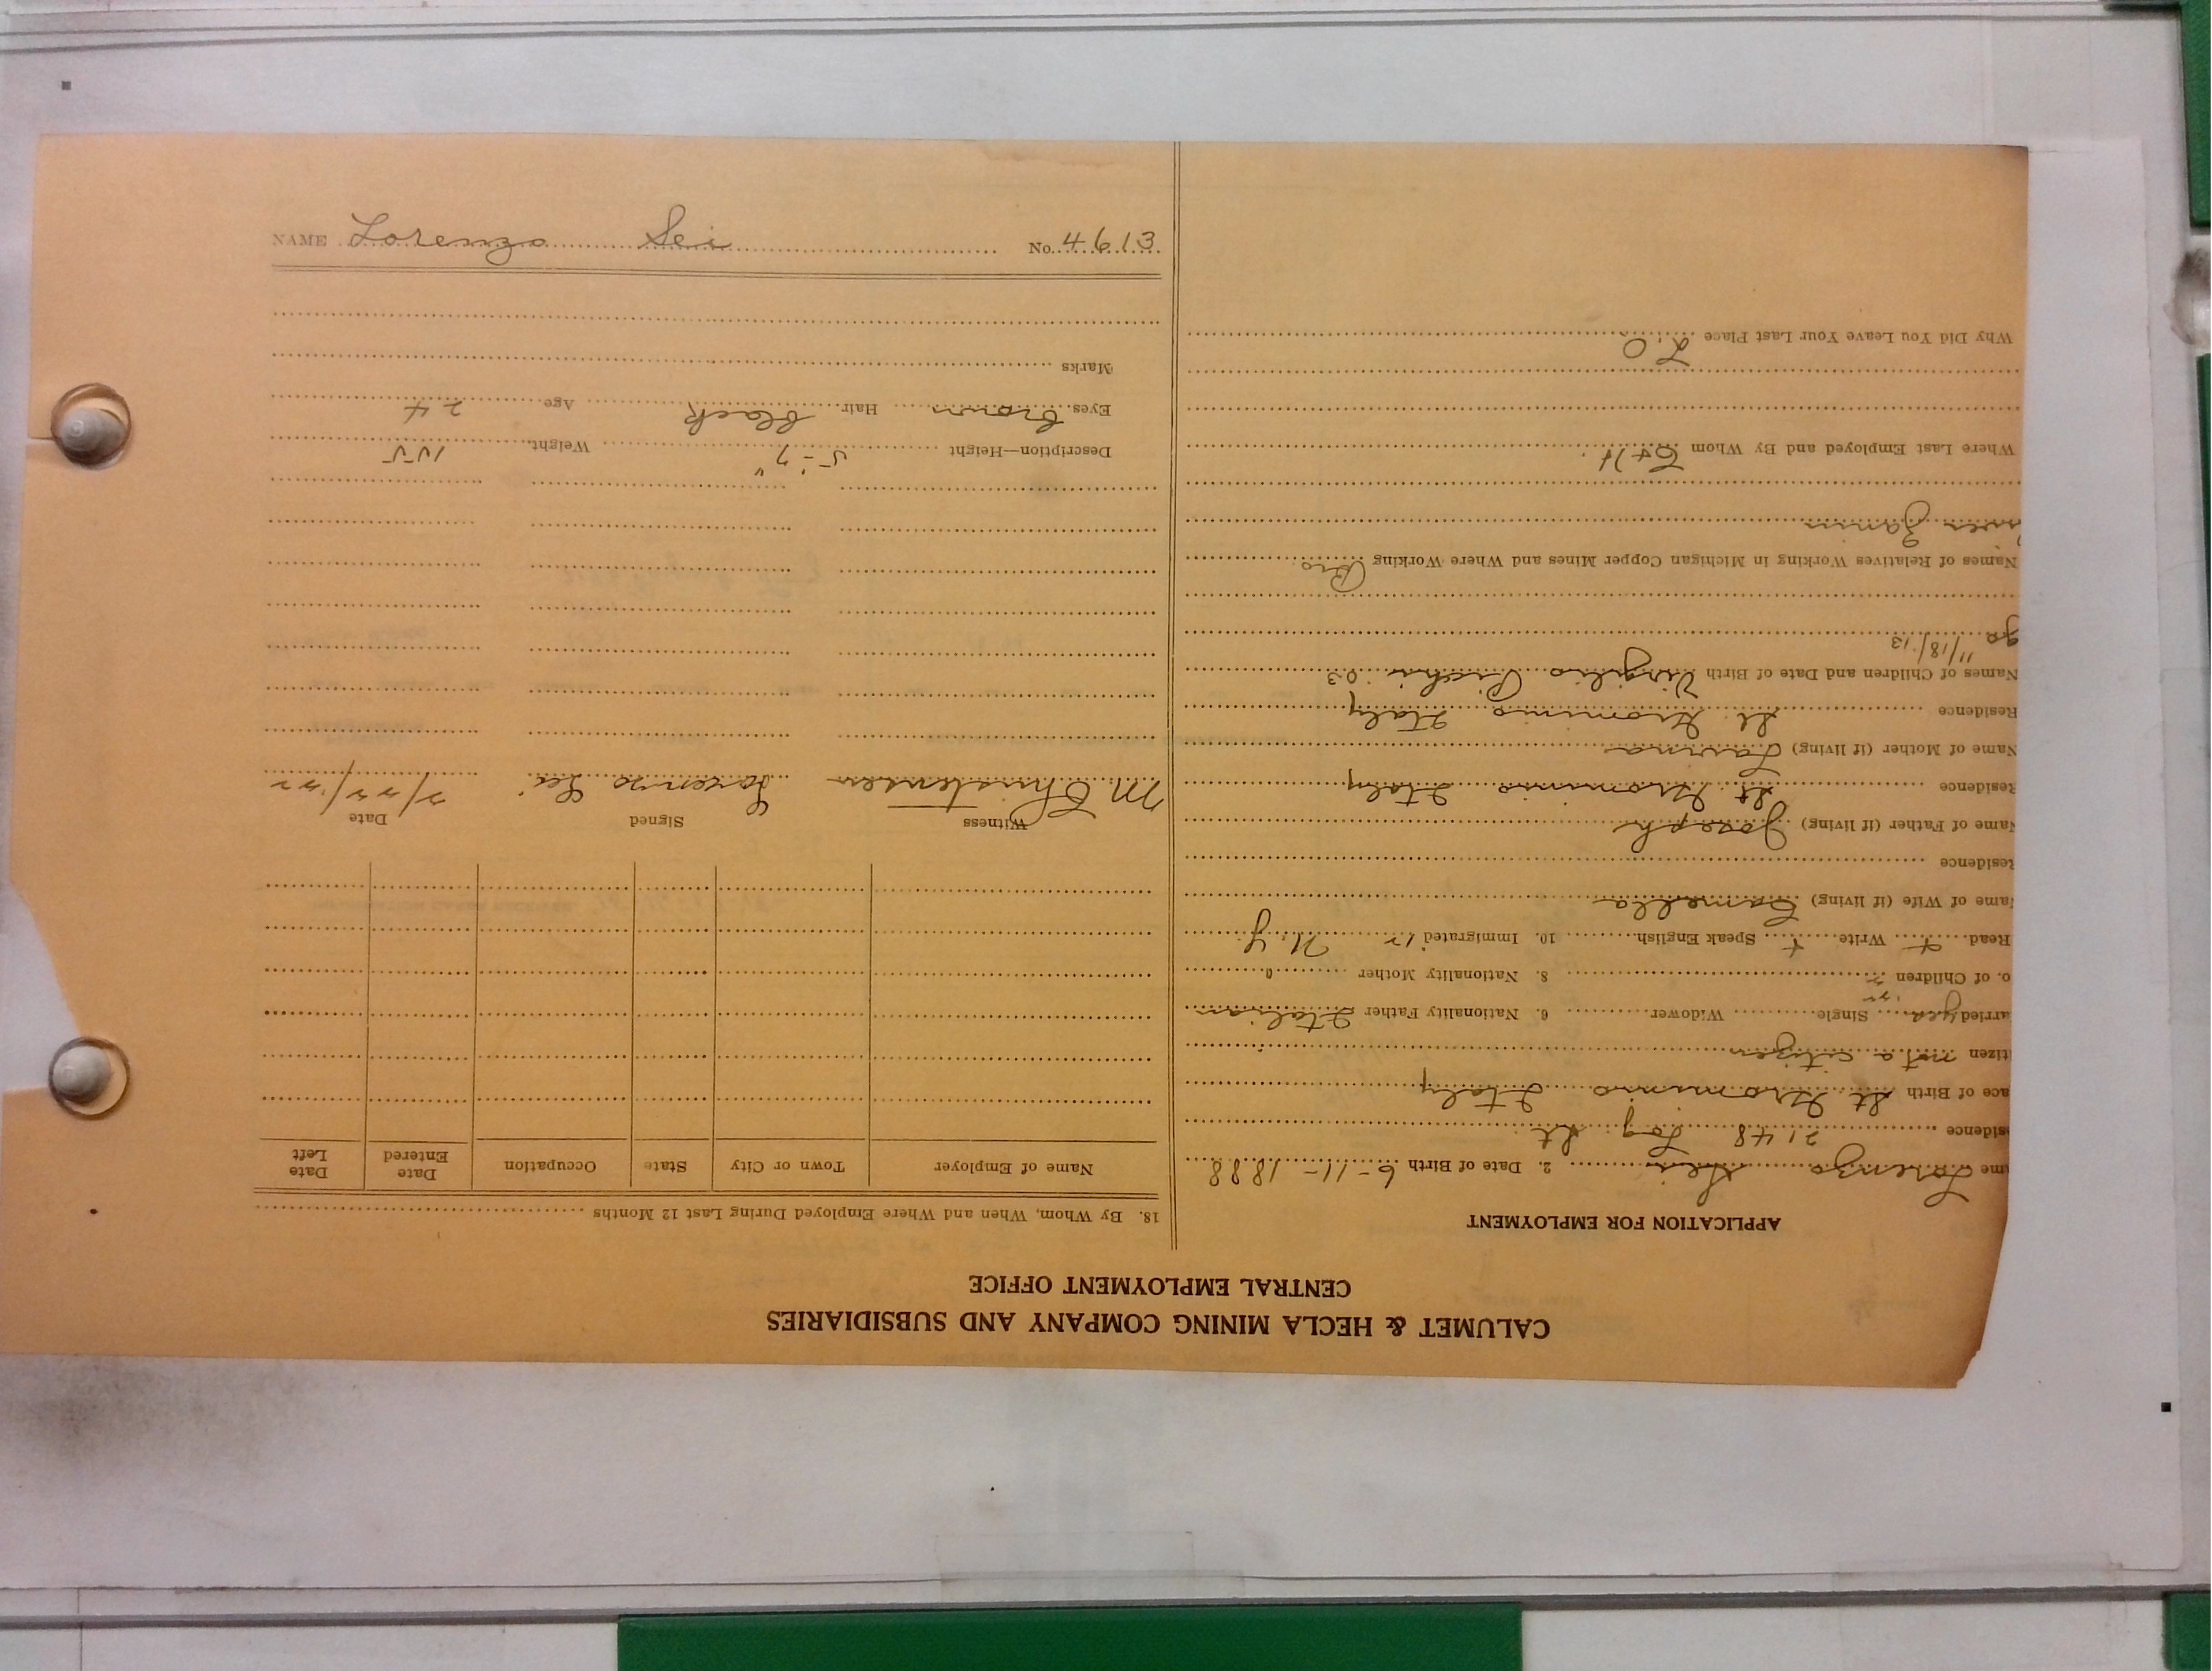 CALUMET & HECLA MINING COMPANY AND SUBSIDIARIES
CENTRAL EMPLOYMENT OFFICE
APPLICATION FOR EMPLOYMENT
me Lorenzo Sei 2. Date of Birth 6-11-1888
sidence 2148 Log St
ace of Birth St Gromino Italy
itizen not a citizen
arried yes Single Widower 6. Nationality Father Italian
o. of Children 2 8. Nationality Mother "
Read + Write + Speak English 10. Immigrated N. Y.
Name of Wife (if living)
Residence
Name of Father (if living) Joseph
Residence St Gromino Italy
Name of Mother (if living)
Residence St Gromino Italy
Names of Children and Date of Birth Virgilio 03
11/18/13
Names of Relatives Working in Michigan Copper Mines and Where Working Bro
Where Last Employed and By Whom C + H.
Why Did You Leave Your Last Place L. O
18. By Whom, When and Where Employed During Last 12 Months
Name of Employer Town or City State Occupation Date Entered Date Left
Witness Signed Date
M. Christensen Lorenzo Sei
Description—Height 5'-7" Weight 155
Eyes brown Hair black Age 24
Marks
NAME Lorenzo Sei No. 4613